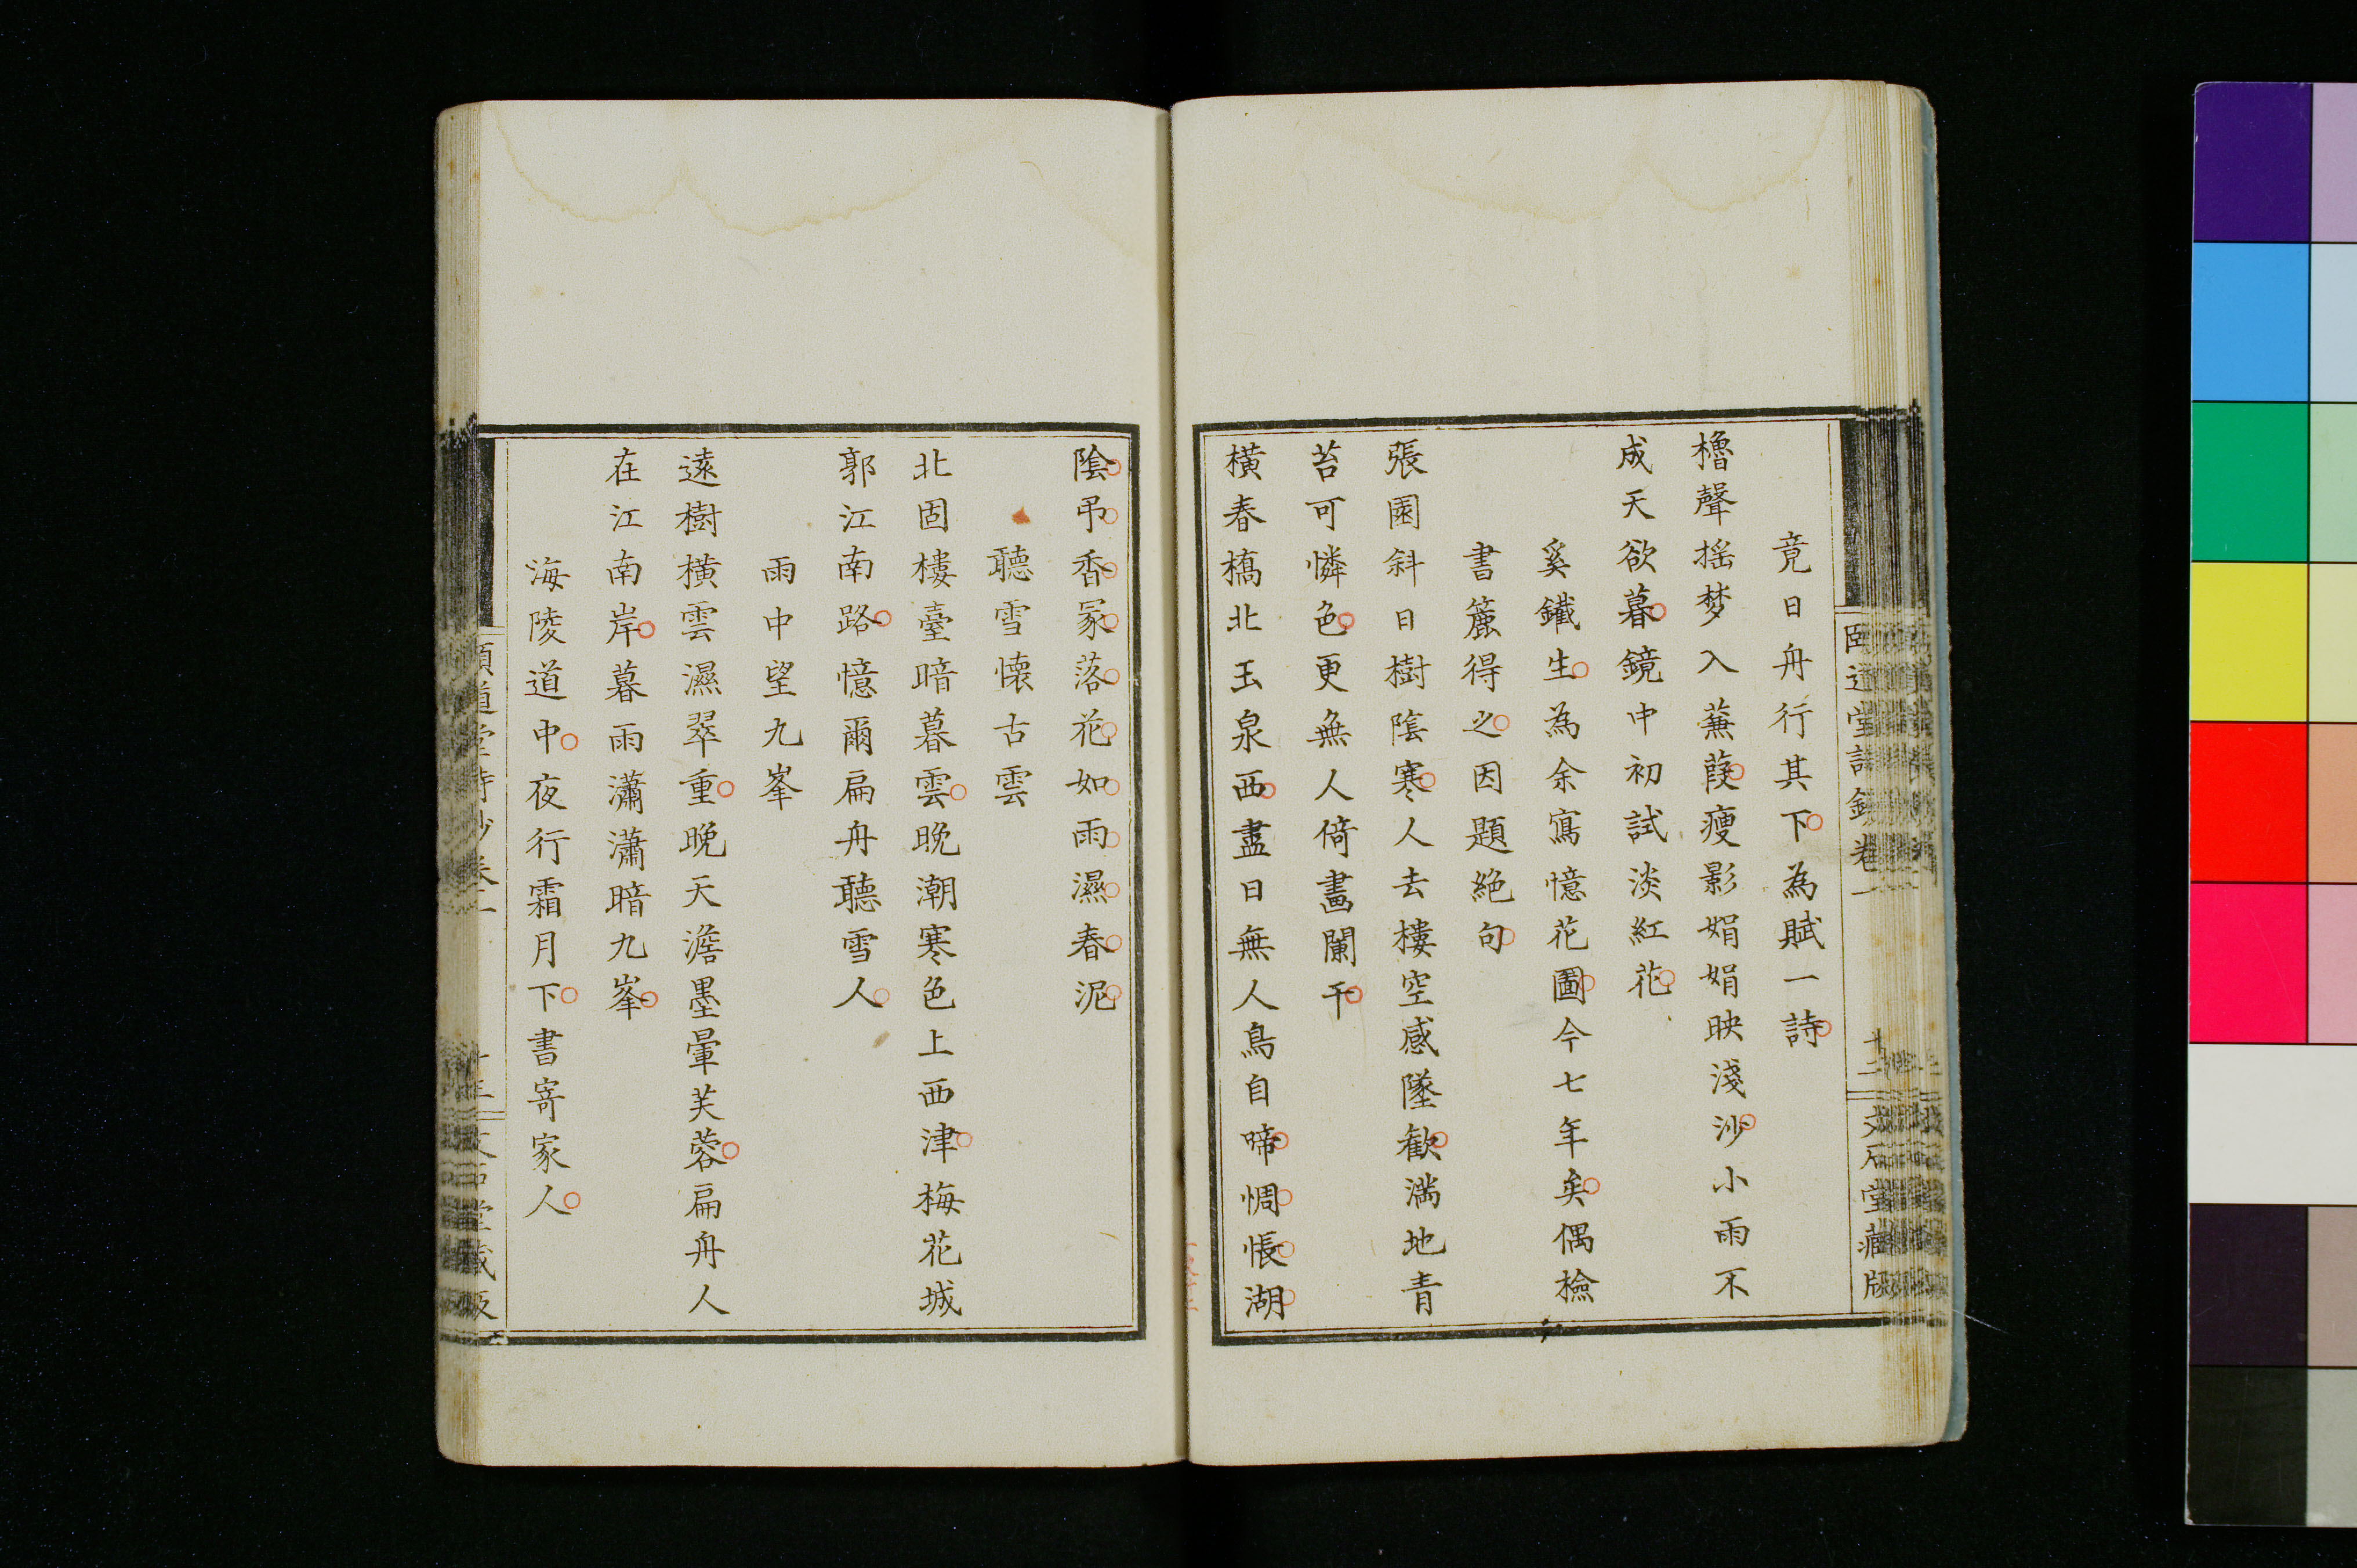 竟日舟行其下為賦一詩
櫓聲揺梦入蒹葭瘦影娟娟映淺沙小雨不
成天欲暮鏡中初試淡紅花
奚鐵生為余寫憶花圖今七年矣偶檢
書簏得之因題絶句
張園斜日樹陰寒人去樓空感墜歡滿地青
苔可憐色更無人倚畫闌干
橫春橋北玉泉西盡日無人鳥自啼惆悵湖
陰弔香冢落花如雨濕春泥
聽雪懷古雲
北固樓臺暗暮雲晚潮寒色上西津梅花城
郭江南路憶爾扁舟聽雪人
雨中望九峯
遠樹橫雲濕翠重晚天澹墨暈芙蓉扁舟人
在江南岸暮雨瀟瀟暗九峯
海陵道中夜行霜月下書寄家人
頤道堂詩鈔卷一
十二
文石堂藏版